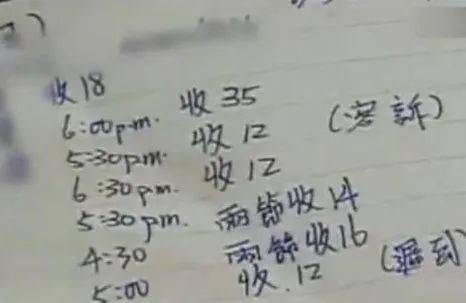 收18
6:00pm. 收35
5:30pm. 收12 (客訴)
6:30pm. 收12
5:30pm. 兩節收14
4:30 兩節收16
5:00 收.12 (遲到)